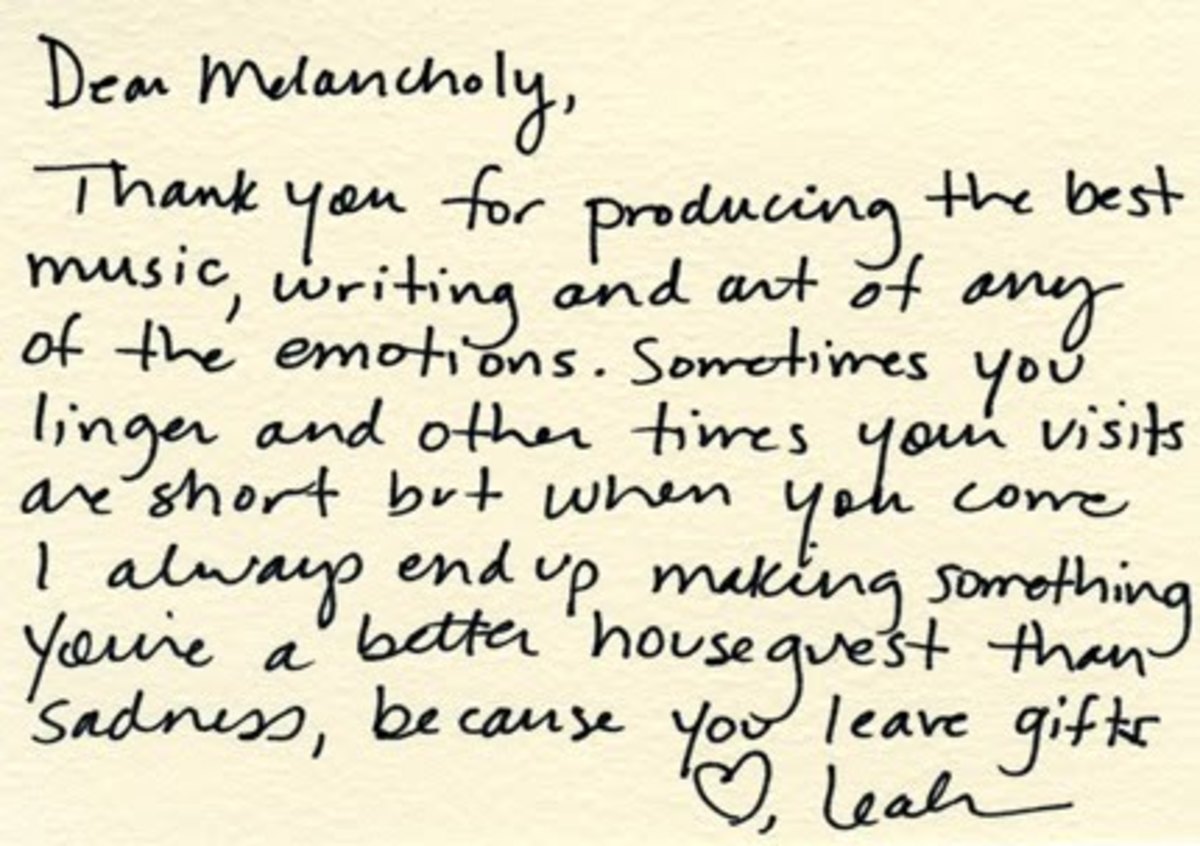 Dear Melancholy,
Thank you for producing the best
music, writing and art of any
of the emotions. Sometimes you
linger and other times your visits
are short but when you come
I always end up making something
You're a better houseguest than
sadness, because you leave gifts
♡, Leah